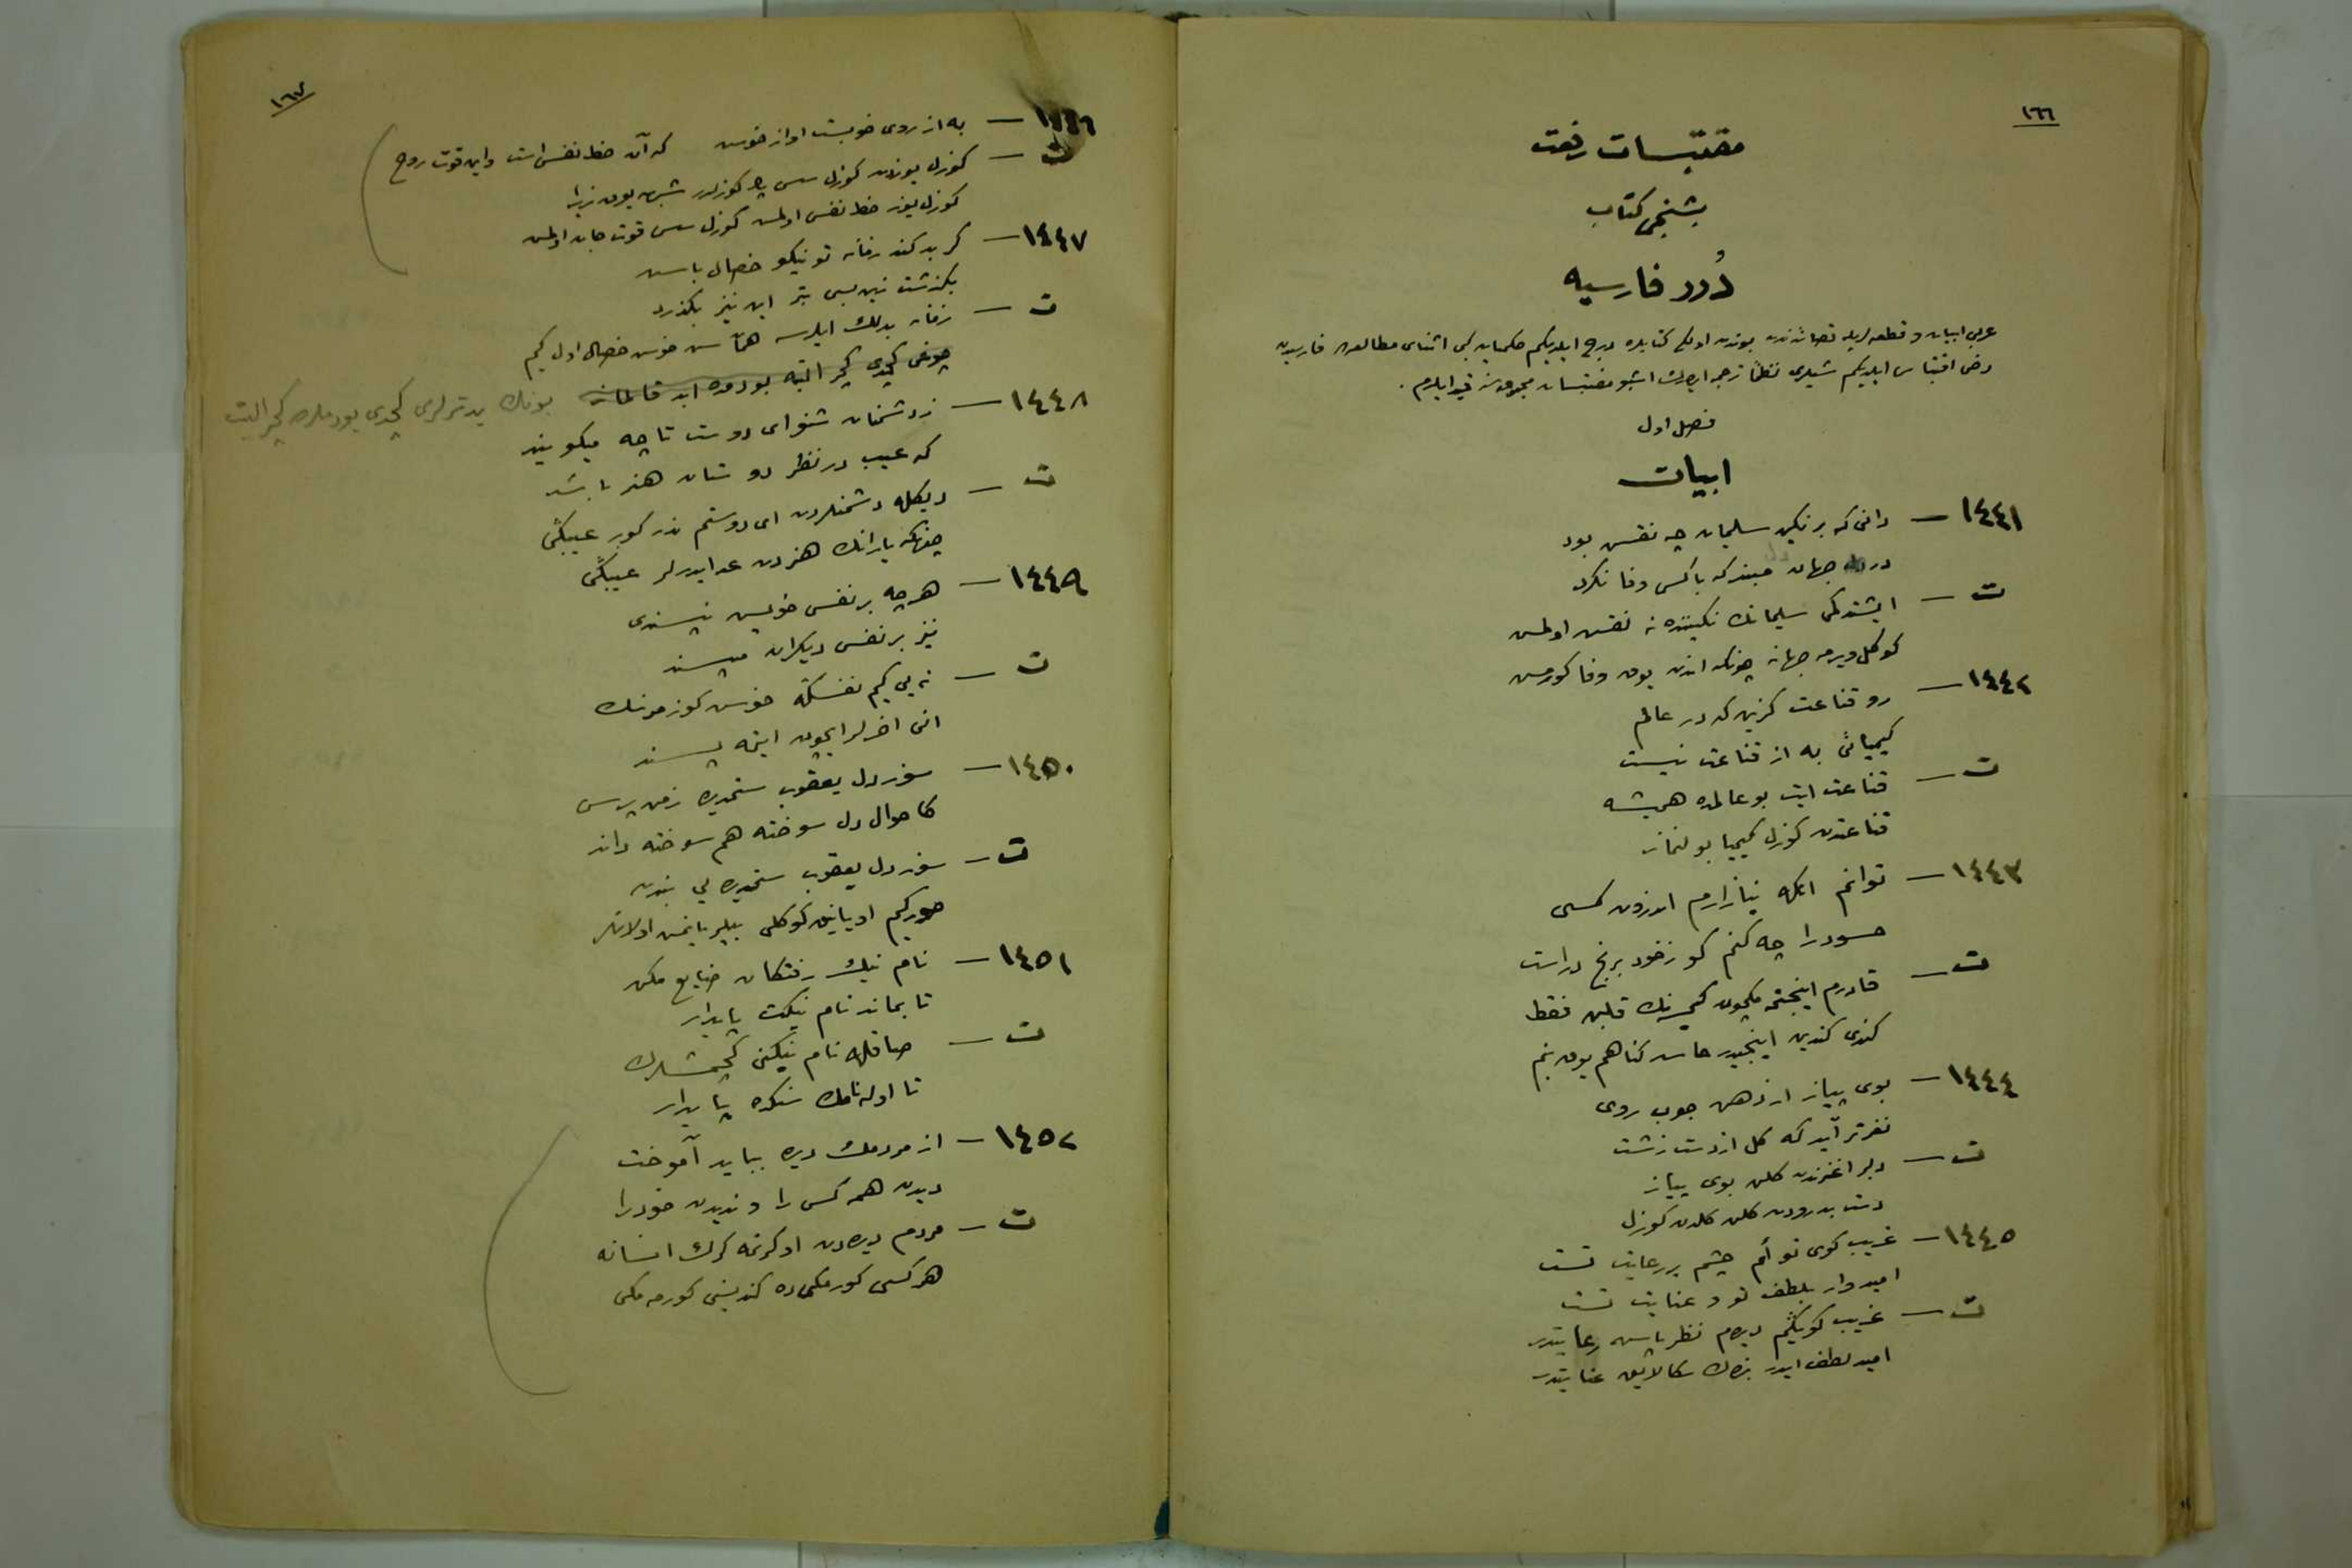 ١٦٦
مقتبسات رفعت
بشنجی كتاب
دُرر فارسیه
عربی ابیات و قطعه لریله قصائدندن بوندن اولكی كتابلره درج ایلدیكم حكمیات كبی اثنای مطالعه‌ده فارسیدن
دخی اقتباس ایلدیكم شیلری نظماً ترجمه ایدرك اشبو مقتبسات مجموعه‌سنه قید ایلدم .
فصل اول
ابیات
١٤٤١ — دانی كه بر نگین سلیمان چه نقش بود
در جهان مبند كه باكس وفا نكرد
دل
ت — ایشتدكمی سلیمانك نگیننده نه نقش اولمش
كوكل ویرمه جهانه چونكه اندن یوق وفا كورمش
١٤٤٢ — رو قناعت گزین كه در عالم
كیمیائی به از قناعت نیست
ت — قناعت ایت بو عالمده همیشه
قناعتدن كوزل كیمیا بولنماز
١٤٤٣ — توانم انكه نیازارم اندرون كسی
حسود را چه كنم كو زخود برنج دراست
ت — قادرم اینجتمه‌مكچون كیمسه‌نك قلبن فقط
كندی كندین اینجیدر حاسد كناهم یوق بنم
١٤٤٤ — بوی پیاز از دهن خوب روی
نغزتر آید كه گل از دست زشت
ت — دلبر اغزندن كلن بوی پیاز
دست بدرودن كلن كلدن كوزل
١٤٤٥ — غریب كوی تو أم چشم بر رعایت تست
امیدوار بلطف تو و عنایت تست
ت — غریب كویكم دیدم نظرباش رعایتدر
امید لطف ایدر بنده‌ك سكا لایق عنایتدر
١٦٧
١٤٤٦ — به از روی خوبست اواز خوش كه آن حظ نفس است واین قوت روح
ت — كوزل یوزدن كوزل سس پك كوزلدر شبهه یوق زیرا
كوزل یوز حظ نفس اولمش كوزل سس قوت جان اولمش
١٤٤٧ — گر بد كند زمانه تو نیكو خصال باش
بگذشت زین بسی بتر این نیز بگذرد
ت — زمانه بدلك ایلرسه همآن سن خوش خصال اول كیم
چوغی كچدی كچر البته بودخی ابد قالماز بونك بدترلری كچدی بودخی كچر البت
١٤٤٨ — زدشمنان شنو ای دوست تا چه میگویند
كه عیب در نظر دوستان هنر باشد
ت — دیكله دشمنلردن ای دوستم ندر كور عیبكی
چونكه یارانك هنردن عد ایدرلر عیبكی
١٤٤٩ — هرچه بر نفس خویش نپسندی
نیز بر نفس دیگران مپسند
ت — نه یی كیم نفسكه خوش كورمزسك
انی اخرلر ایچون ایتمه پسند
١٤٥٠ — سوز دل یعقوب ستمدیده زمن پرس
كاحوال دل سوخته هم سوخته داند
ت — سوز دل یعقوب ستمدیده‌یی بندن
صور كیم او یانیق كوكلی بیلیر یانمش اولانلر
١٤٥١ — نام نیك رفتگان ضایع مكن
تا بماند نام نیكت پایدار
ت — صاقله نام نیكنی كچمشلرك
تا اوله نامك سنكده پایدار
١٤٥٢ — از مردمك دیده بباید آموخت
دیدن همه كس را و ندیدن خود را
ت — مردم دیده‌دن اوكرنمه كرك انسانه
هركسی كورمكی‌ده كندیسنی كورمه‌مكی